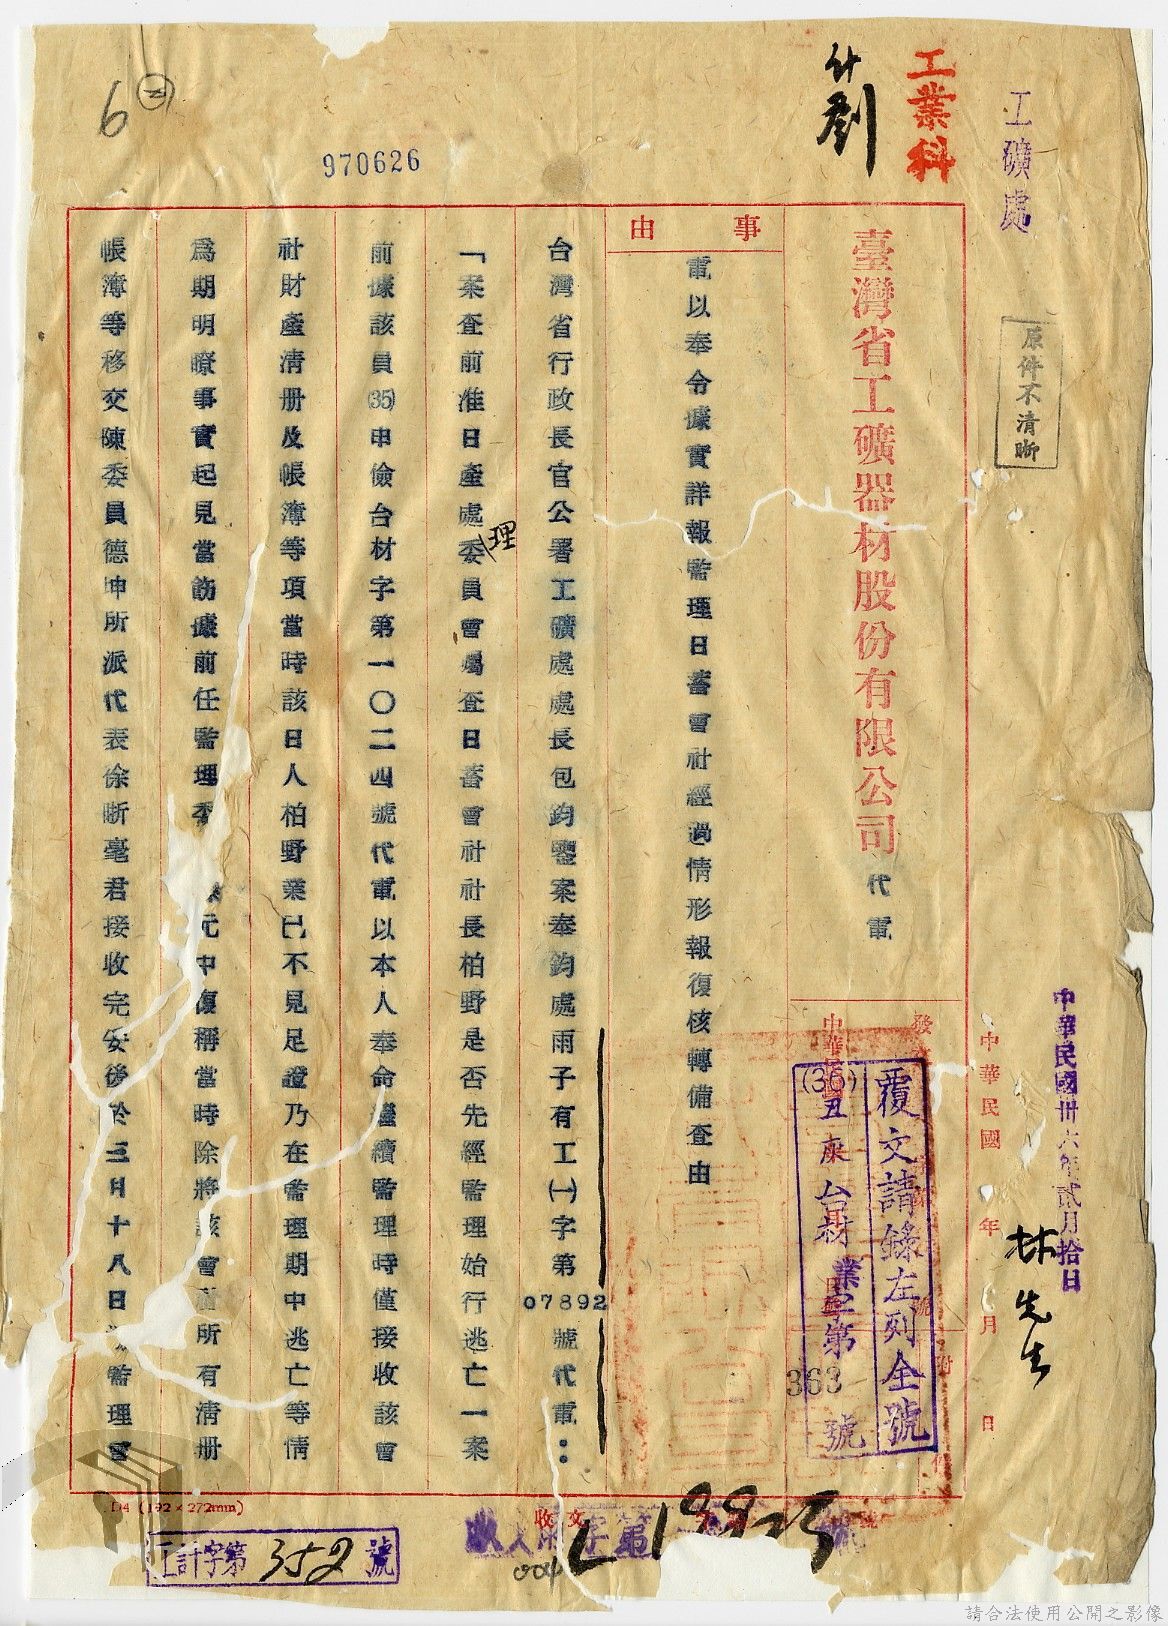 工礦處
工業科
原件不清晰
970626
6
中華民國卅六年貳月拾日
林先生
中華民國 年 月 日
臺灣省工礦器材股份有限公司代電
覆文請錄左列全號
(36)丑 台材業 第363號
事由
電以奉令據實詳報監理日蓄會社經過情形報復核轉備查由
台灣省行政長官公署工礦處處長包鈞鑒案奉鈞處雨子有工㈠字第07892號代電:
「案查前准日產處理委員會囑查日蓄會社社長柏野是否先經監理始行逃亡一案
前據該員(35)申儉台材字第一〇二四號代電以本人奉命繼續監理時僅接收該會
社財產清册及帳簿等項當時該日人柏野業已不見足證乃在監理期中逃亡等情
爲期明瞭事實起見當飭據前任監理委 元中復稱當時除將該會 所有清册
帳簿等移交陳委員德坤所派代表徐晣毫君接收完妥後於三月十八日 監理會
D4 (192×272mm)
收文 字第 號
工計字第352號
請合法使用公開之影像